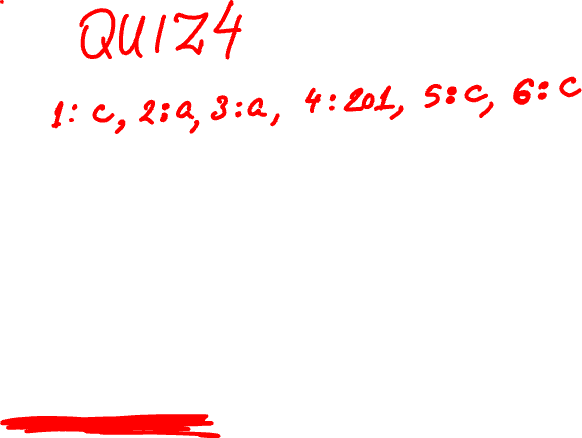 QUIZ4
1: c, 2:a, 3:a, 4:201, 5:c, 6:c